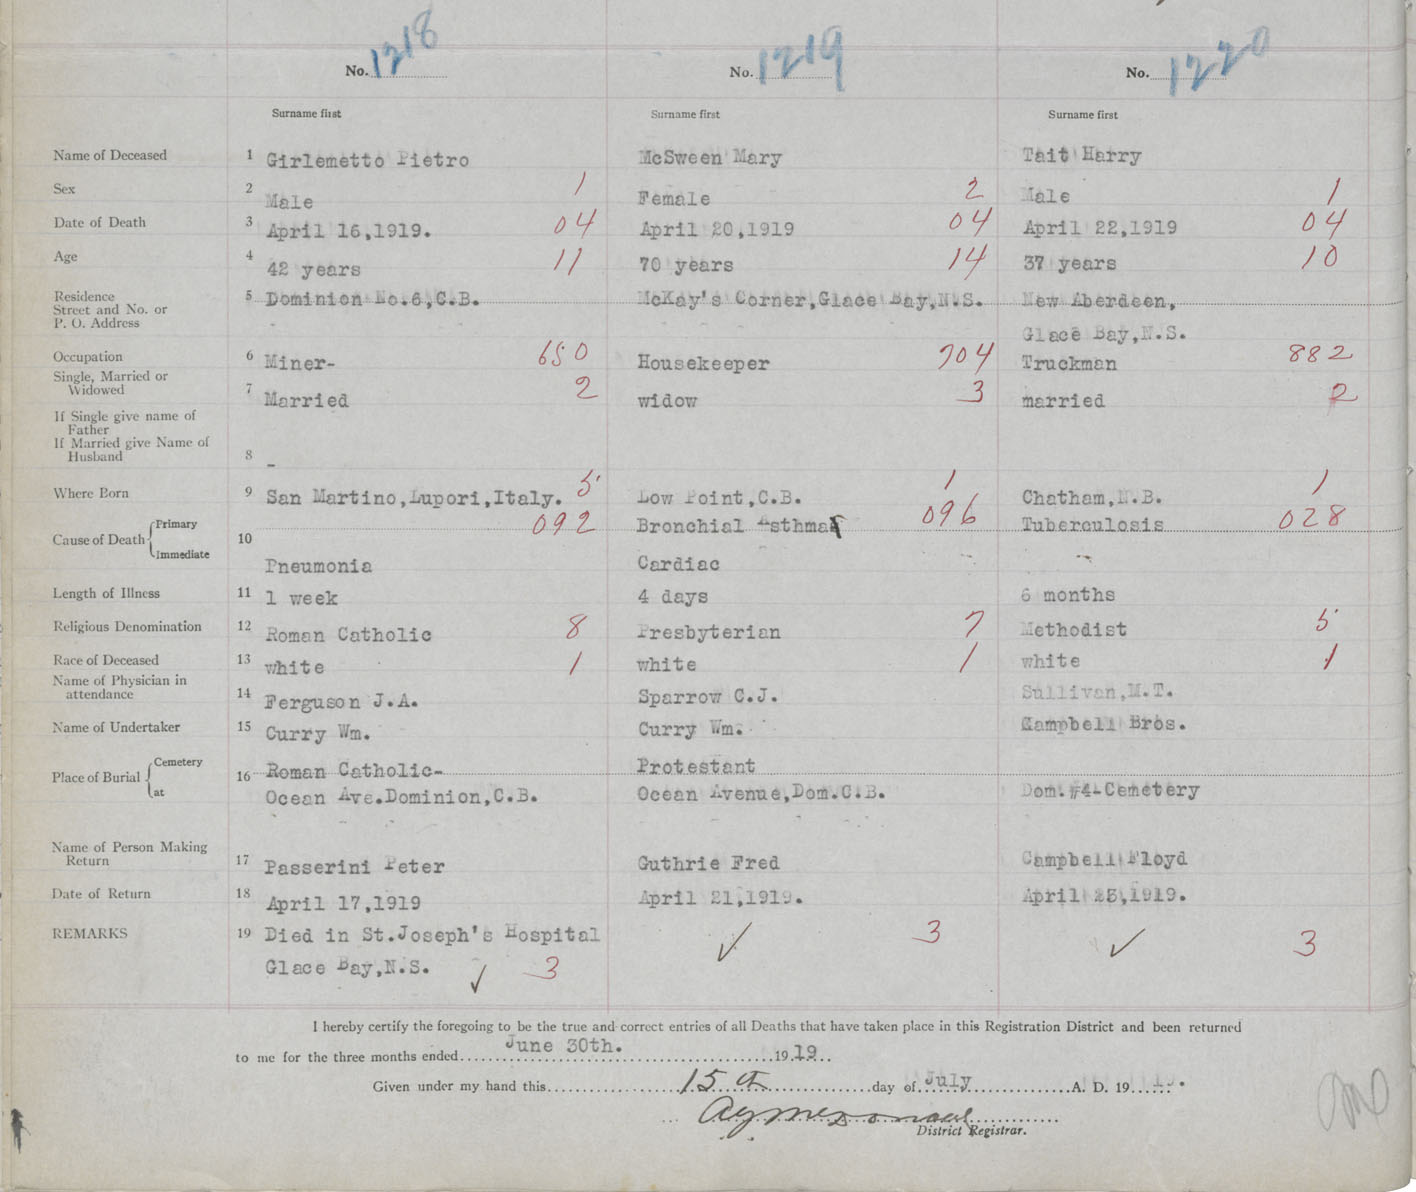 No. 1218 No. 1219 No. 1220
Surname first Surname first Surname first
Name of Deceased 1 Girlemetto Pietro McSween Mary Tait Harry
Sex 2 Male 1 Female 2 Male 1
Date of Death 3 April 16,1919. 04 April 20,1919 04 April 22,1919 04
Age 4 42 years 11 70 years 14 37 years 10
Residence 5 Dominion No.6,C.B. McKay's Corner,Glace Bay,N.S. New Aberdeen,
Street and No. or
P. O. Address Glace Bay,N.S.
Occupation 6 Miner- 650 Housekeeper 704 Truckman 882
Single, Married or
Widowed 7 Married 2 widow 3 married 2
If Single give name of
Father
If Married give Name of
Husband 8 -
Where Born 9 San Martino,Lupori,Italy. 5 Low Point,C.B. 1 Chatham,N.B. 1
Primary 092 Bronchial Asthma 096 Tuberculosis 028
Cause of Death 10
Immediate Pneumonia Cardiac
Length of Illness 11 1 week 4 days 6 months
Religious Denomination 12 Roman Catholic 8 Presbyterian 7 Methodist 5
Race of Deceased 13 white 1 white 1 white 1
Name of Physician in
attendance 14 Ferguson J.A. Sparrow C.J. Sullivan,M.T.
Name of Undertaker 15 Curry Wm. Curry Wm. Campbell Bros.
Cemetery Roman Catholic- Protestant
Place of Burial 16
at Ocean Ave.Dominion,C.B. Ocean Avenue,Dom.C.B. Dom.#4-Cemetery
Name of Person Making
Return 17 Passerini Peter Guthrie Fred Campbell Floyd
Date of Return 18 April 17,1919 April 21,1919. April 23,1919.
REMARKS 19 Died in St.Joseph's Hospital 3 3
Glace Bay,N.S. 3
I hereby certify the foregoing to be the true and correct entries of all Deaths that have taken place in this Registration District and been returned
to me for the three months ended June 30th. 1919
Given under my hand this 15th day of July A. D. 19 19.
District Registrar.